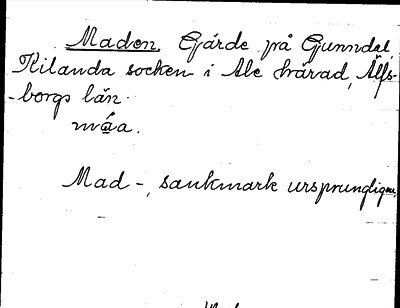 Maden. Gärde på Gunndal
Kilanda socken i Ale härad, Älfs-
-borgs län.
máa.
Mad-, sankmark ursprungligen.